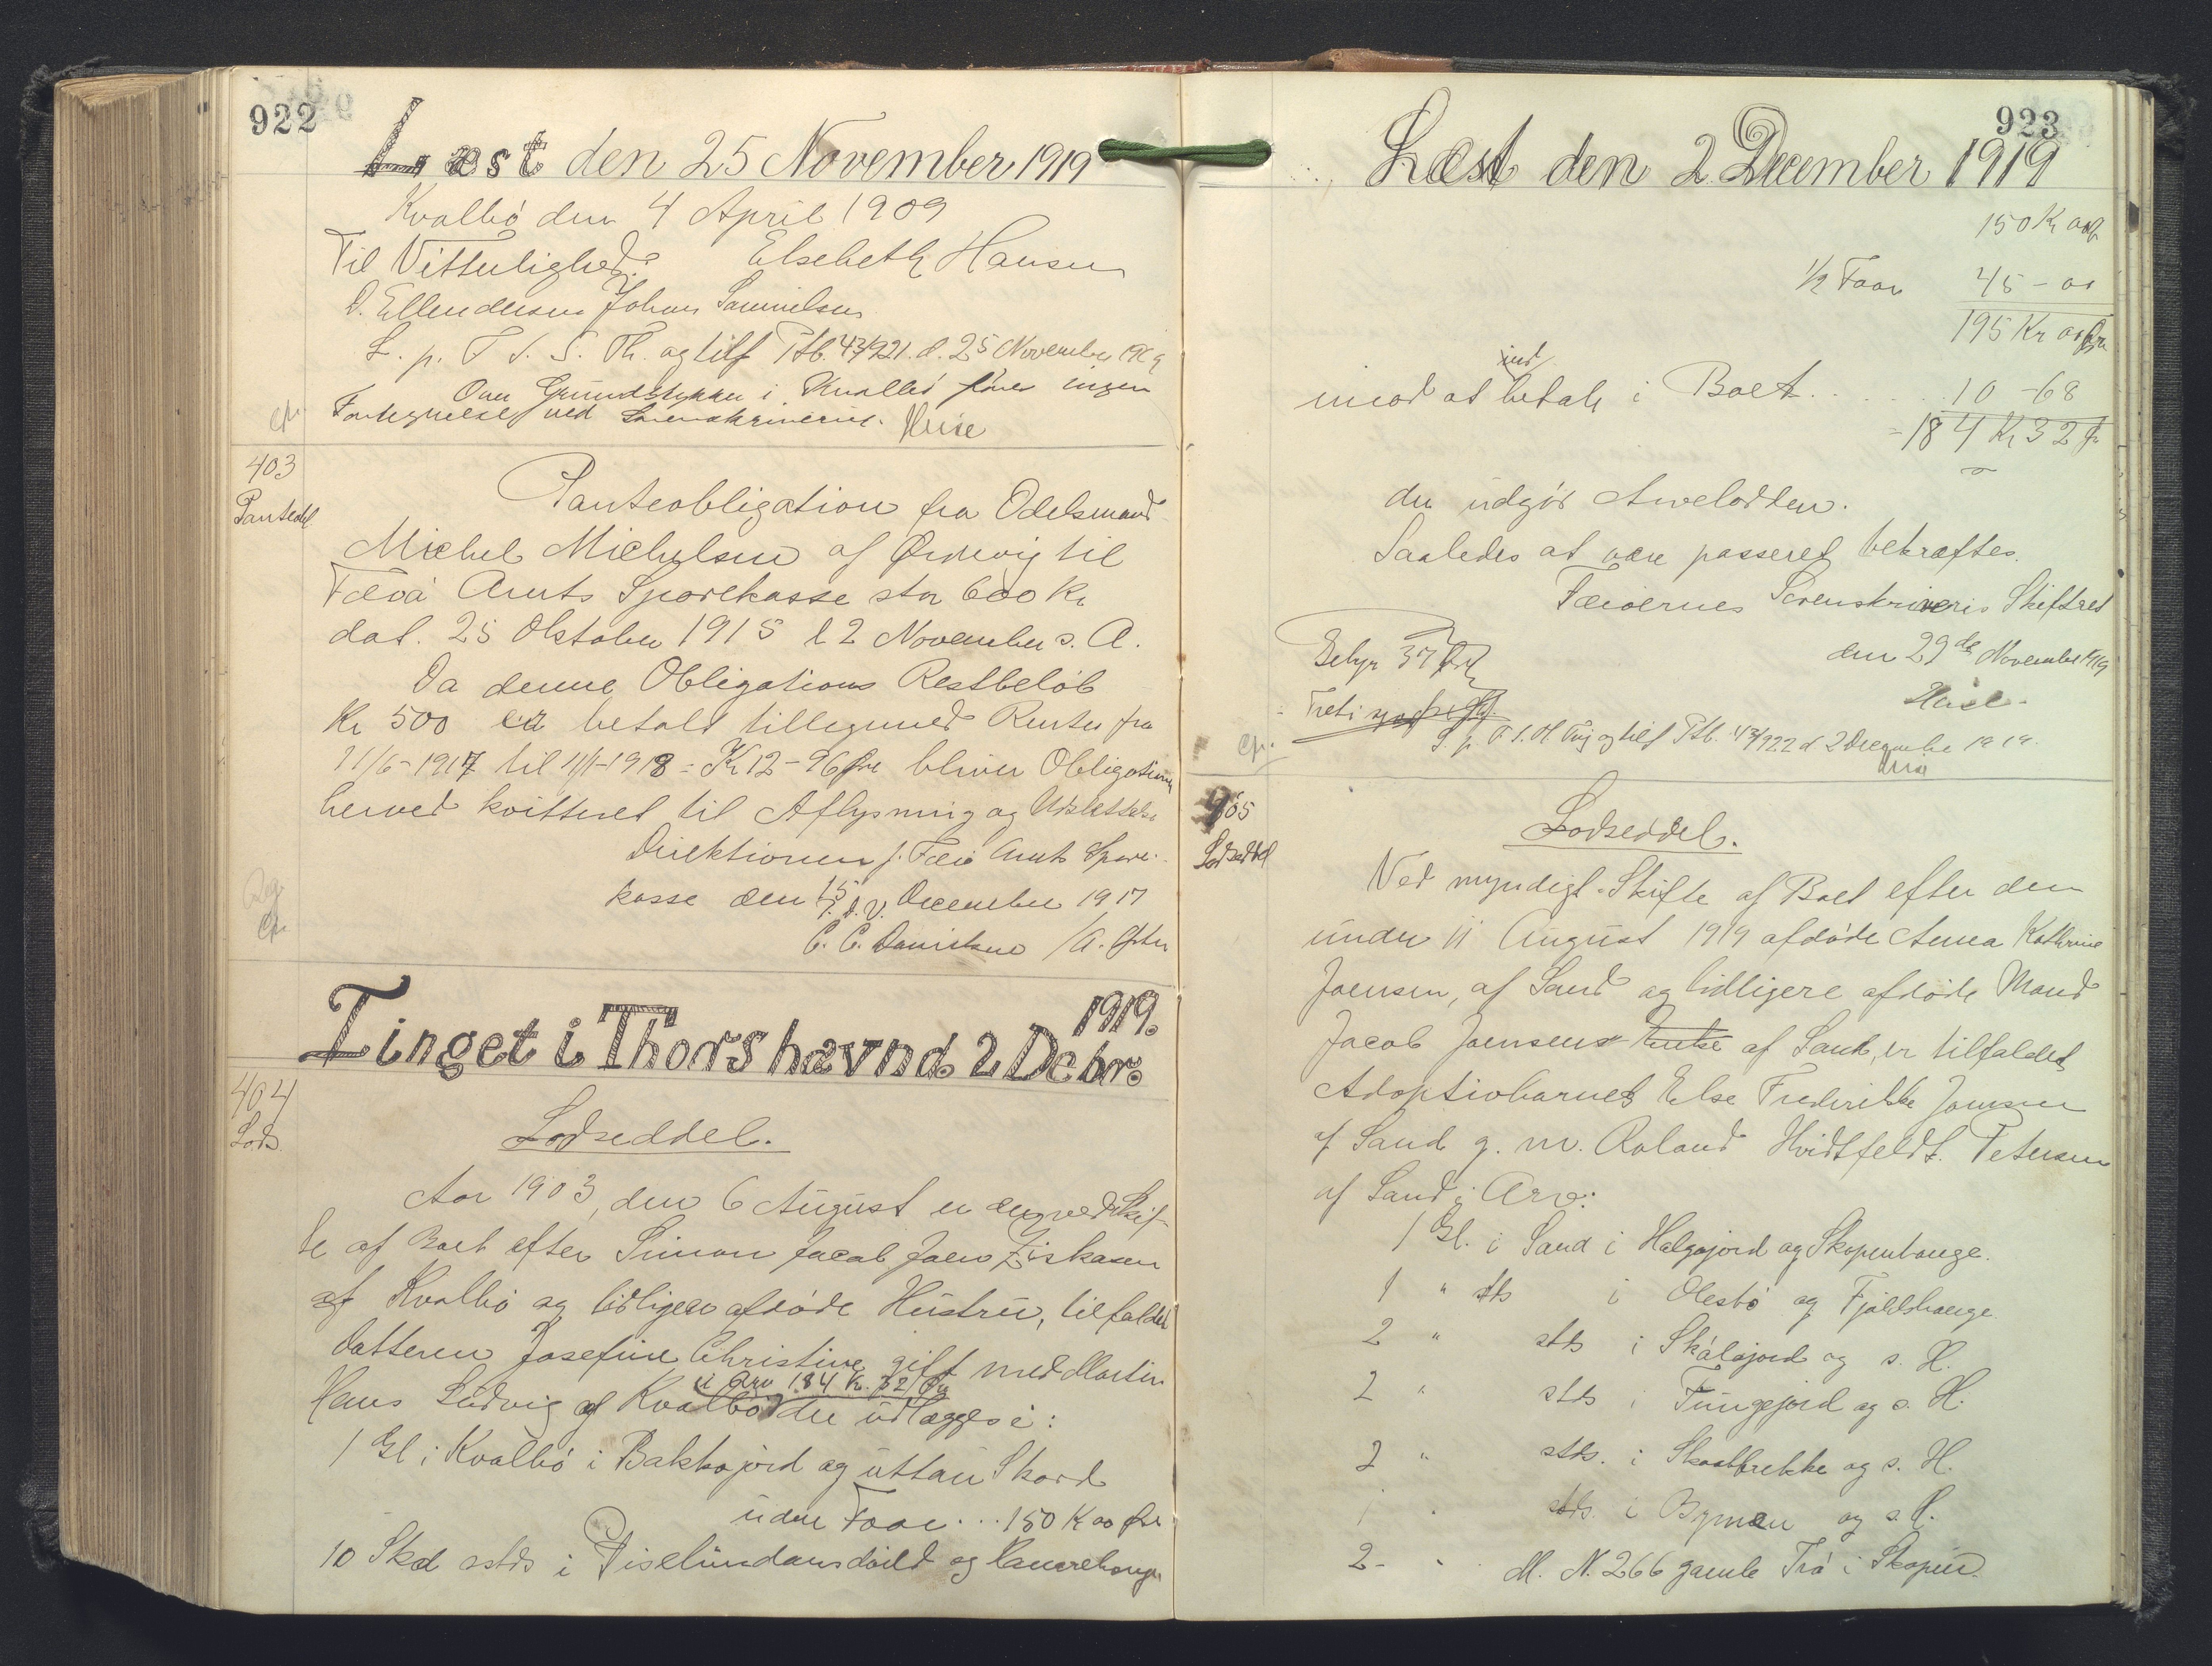 922
Læst den 25 November 1919
Kvalbø den 4 April 1909
Til Vitterlighed: Elsebeth Hansen
D. Ellendersen Johan Samuelsen
L. p. T. S. S. Th. og tilf Ptb. 43/921. d. 25 November 1919
Over Grundstykker i Kvalbø føres ingen
Fortegnelse ved Sorenskriveriet. Heise
cfr.
403
Pantedl
Panteobligation fra Odelsmand
Michel Michelsen af Ørdevig til
Færø Amts Sparekasse stor 600 Kr
dat. 25 Oktober 1915 l 2 November s. A.
Da denne Obligations Restbeløb
Kr 500 er betalt tilligemed Renter fra
11/6-1917 til 11/1-1918 = Kr 12-96 Øre bliver Obligationen
herved kvitteret til Aflysning og Udslettelse
Direktionen f. Færø Amts Spare-
kasse den 15 December 1917
T. d. V.
C. C. Danielsen /A.
cfr
Tinget i Thorshavn d. 2 Decbr. 1919.
404
Lods.
Lodseddel.
Aar 1903, den 6 August er der ved Skif-
te af Boet efter Simon Jacob Joen Ziskasen
af Kvalbø og tidligere afdøde Hustru, tilfaldet
Datteren Josefine Christine gift med Martin
i Arv 184 Kr. 32 Øre
Hans Ludvig af Kvalbø der udlægges i:
1 Gl i Kvalbø i Bakkajord og uttan Skard
uden Faar... 150 K 00 Øre
10 Skd astds i
923
Læst den 2 December 1919
150 Kr 00
1/2 Faar 45 - 00
195 Kr 00 Øre
ind
mod at betale i Boet...... 10 - 68
= 184 Kr 32 Ø
der udgør Arvelodden.
Saaledes at være passeret bekræftes.
Færøernes Sorenskriveris Skifteret
den 29de November 1919
Heise.
Gebyr 37 Øre
Treti syv Øre
L. p. og tilf Ptb. 43/922 d 2 December 1919.
Heise
cfr.
405
Lodseddel
Lodseddel.
Ved myndigt Skifte af Boet efter den
under 11 August 1919 afdøde Anna Kathrine
Joensen, af Sand og tidligere afdøde Mand
Jacob Joensens af Sand, er tilfaldet
Adoptivbarnet Else Frederikke Joensen
af Sand g. m. Roland Hvidtfeldt Petersen
af Sand i Arv:
1 Gl. i Sand i Halgajord og Skopenhauge.
1 " stds i Olesbø og Fjaldshauge
2 " stds i Skálajord og s. H.
2 " stds i Tungejord og s. H.
2 " stds. i Skaalbrekke og s. H.
1 " stds. i Bymæn og s. H.
2 - " M. N. 266 gamle Trø i Skopun